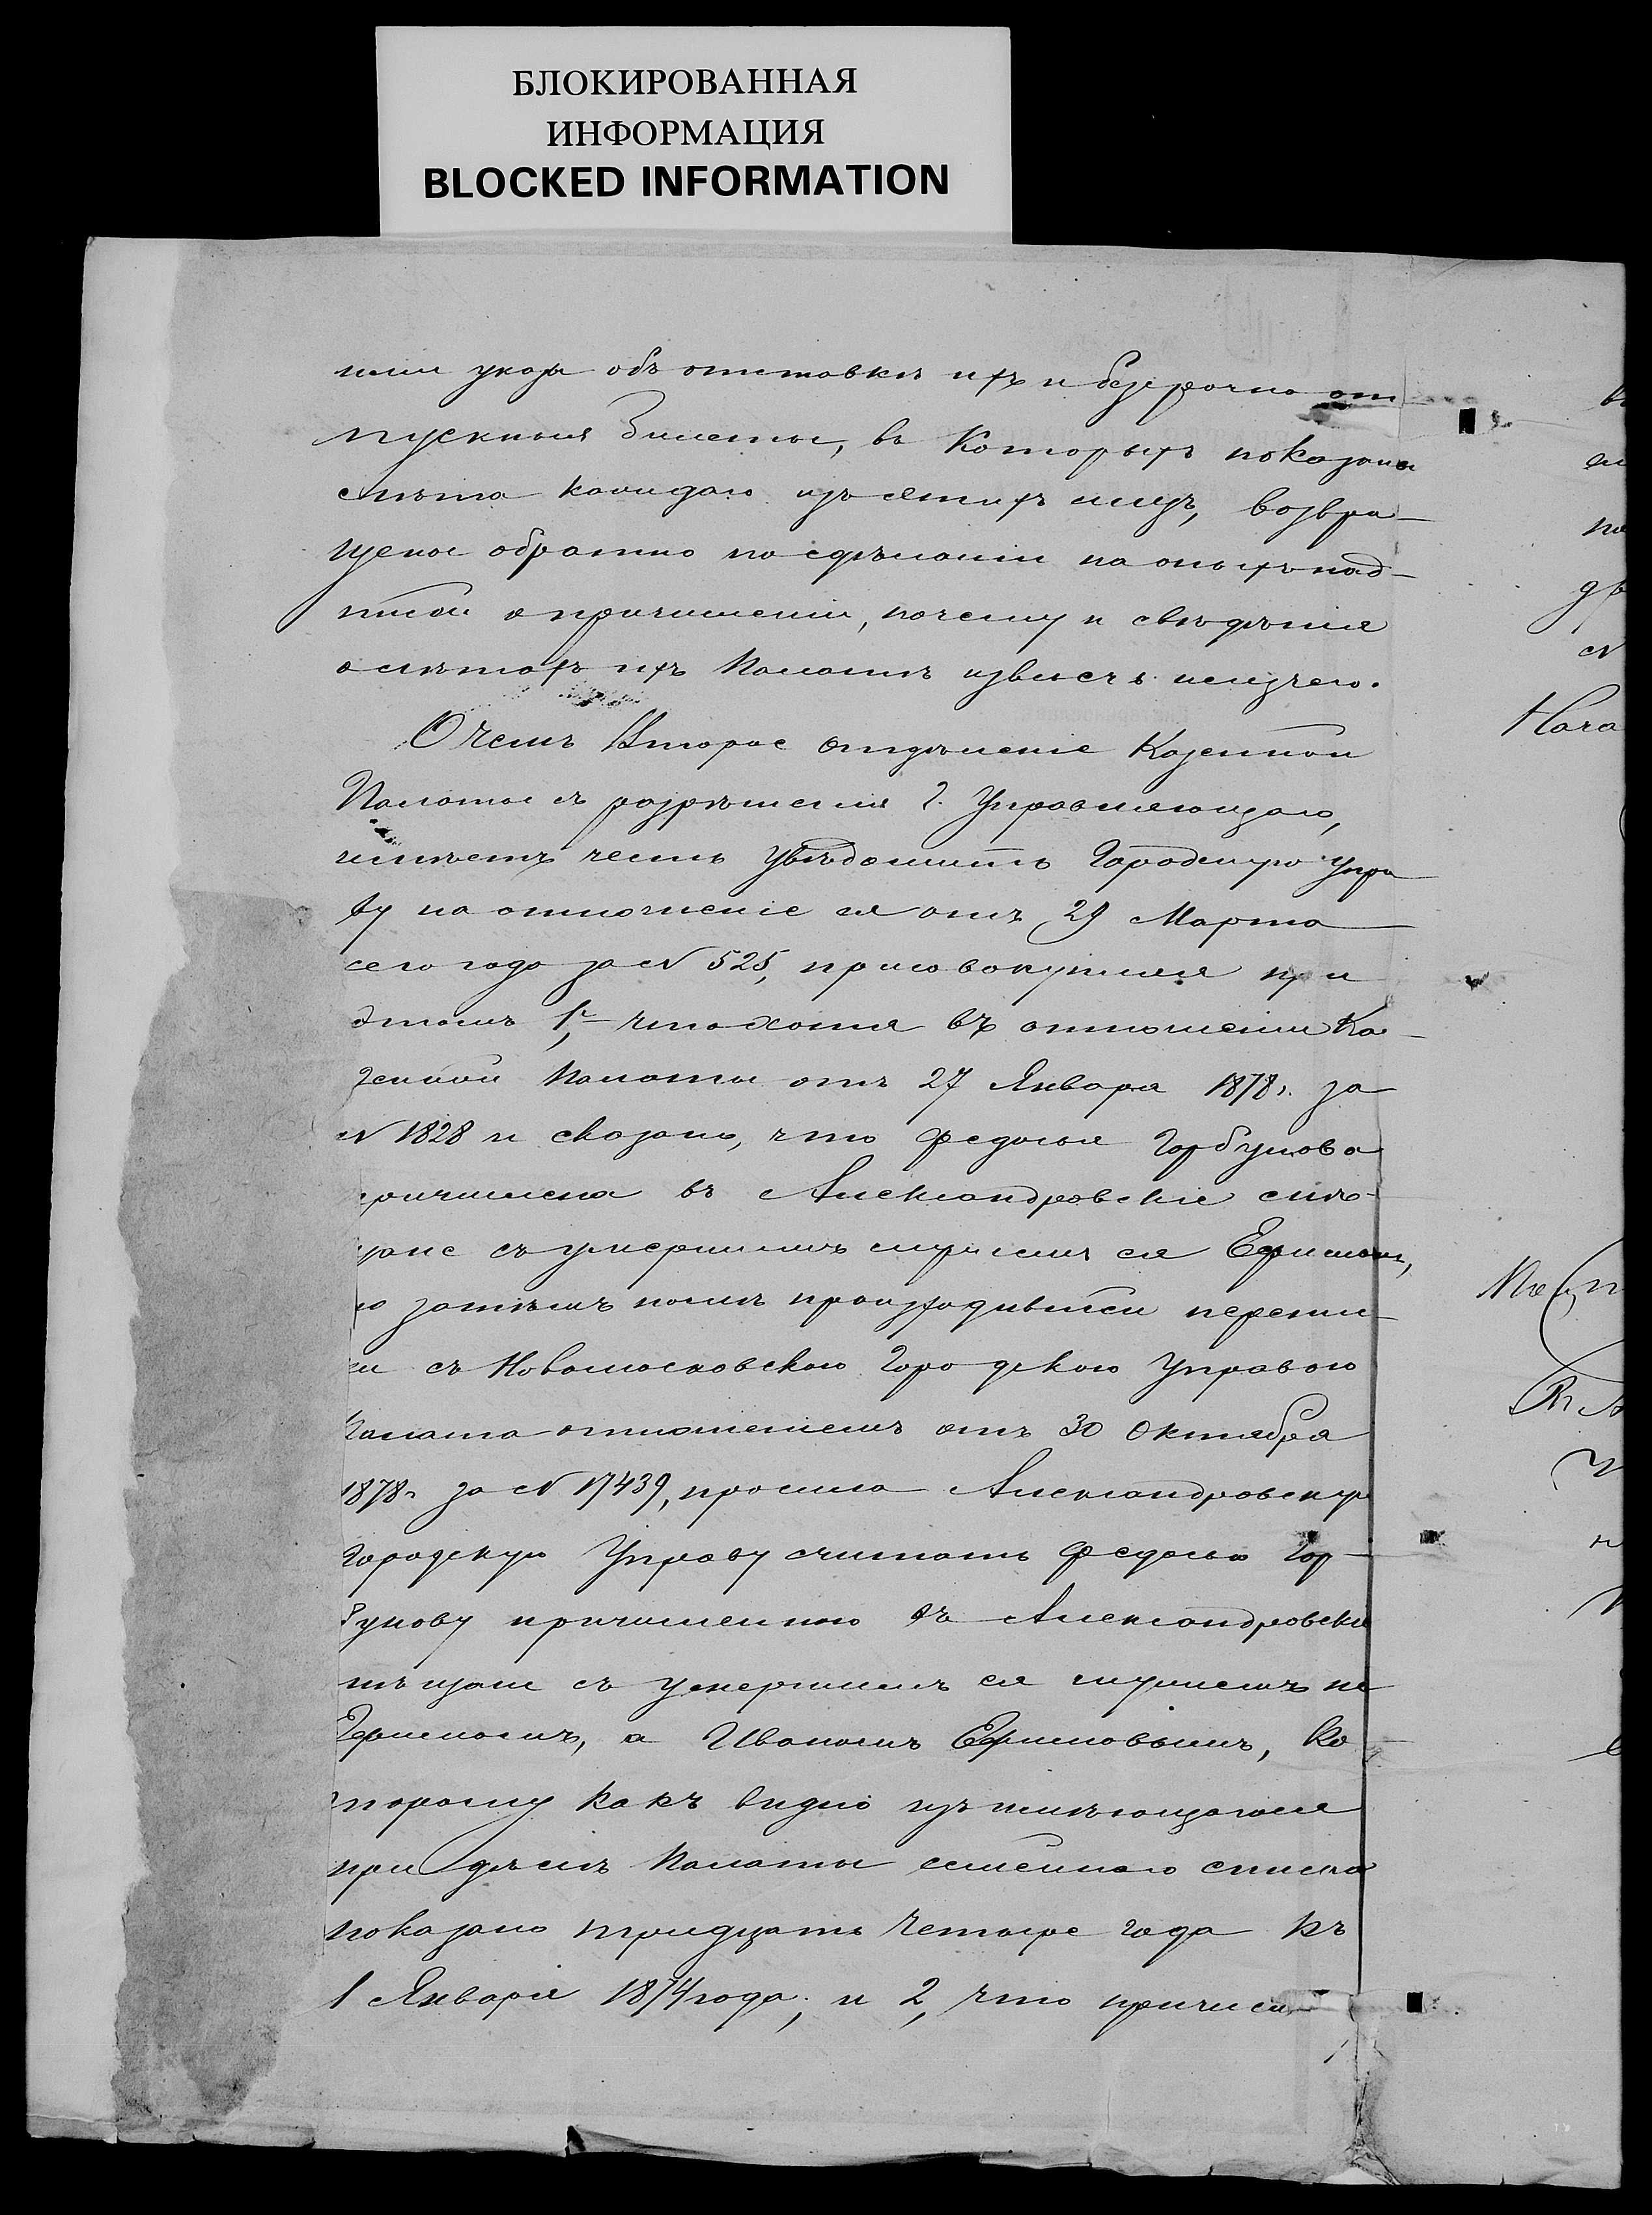 БЛОКИРОВАННАЯ
ИНФОРМАЦИЯ
BLOCKED INFORMATION
ими указы объ отставкѣ ихъ и безсрочно от
пускные билеты, въ которыхъ показаны
лѣта каждаго изъ этихъ лицъ, возвра-
щены обратно по сдѣланіи на оныхъ над-
писи о причисленіи, почему и свѣдѣнія
о лѣтахъ ихъ Палатѣ извлечь неизчего.
О чемъ Второе отдѣленіе Казенной
Палаты съ разрѣшенія Г. Управляющаго,
имѣетъ честь увѣдомить Городскую Упра
ву на отношеніе ея отъ 29 Марта
сего года за N 525, присовокупляя при
этомъ 1, что хотя въ отношеніи Ка-
зенной Палаты отъ 27 Января 1878 г. за
N 1828 и сказано, что Федосья Горбунова
причислена въ Александровскіе мѣ-
щане съ умершимъ мужемъ ея Ефимомъ,
но затѣмъ послѣ происходившей перепи-
ки съ Новомосковскою Городскою Управою
Палата отношеніемъ отъ 30 Октября
1878 г. за N 17439, просила Александровскую
Городскую Управу считать Федосью Гор-
бунову причисленною въ Александровскіе
мѣщане съ умершимъ ея мужемъ не
Ефимомъ, а Иваномъ Ефимовымъ, ко
торому какъ видно изъ имѣющагося
при дѣлѣ Палаты семейнаго списка
показано тридцать четыре года къ
1 Января 1874 года; и 2, что причисл
Нача